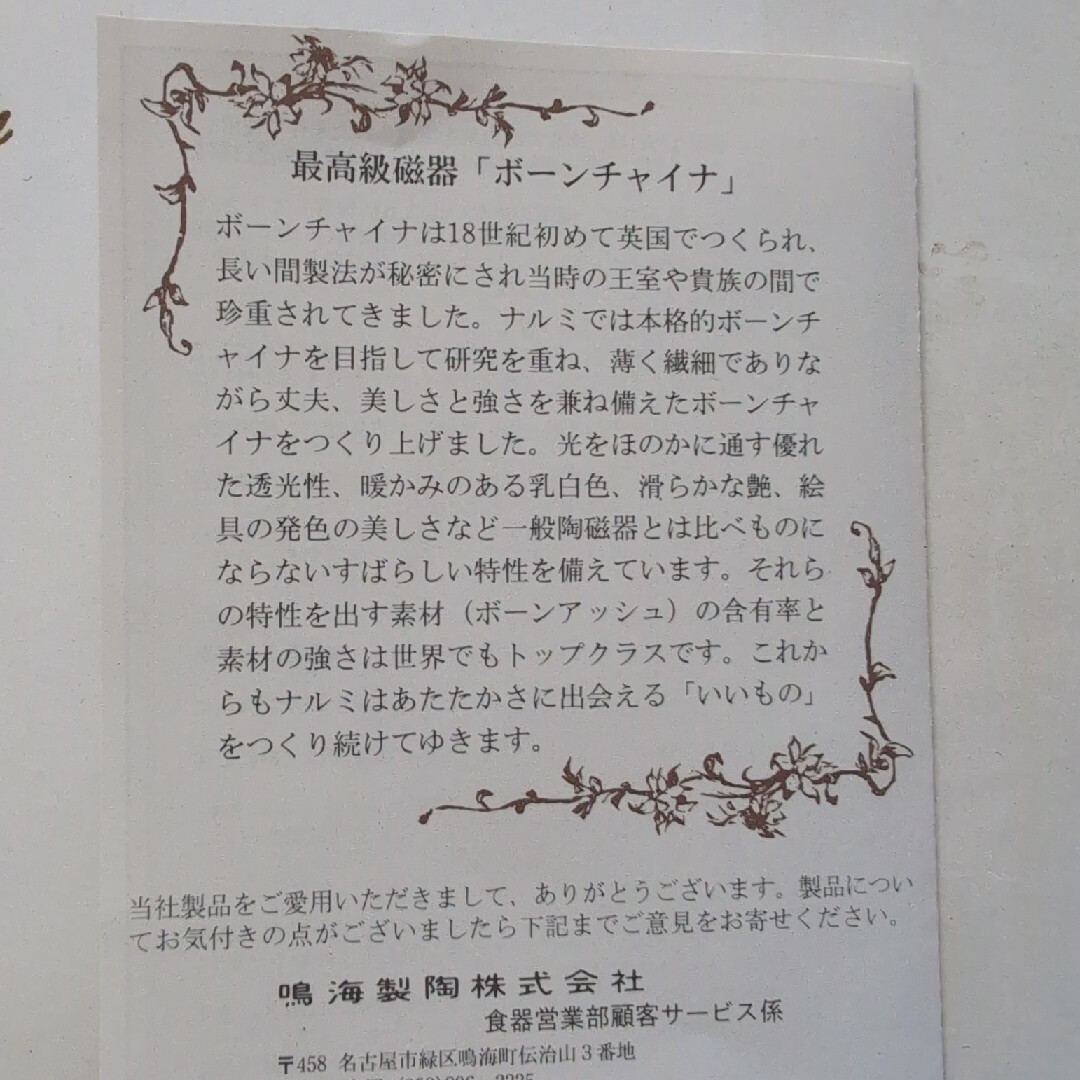 最高級磁器「ボーンチャイナ」
ボーンチャイナは18世紀初めて英国でつくられ、
長い間製法が秘密にされ当時の王室や貴族の間で
珍重されてきました。ナルミでは本格的ボーンチ
ャイナを目指して研究を重ね、薄く繊細でありな
がら丈夫、美しさと強さを兼ね備えたボーンチャ
イナをつくり上げました。光をほのかに通す優れ
た透光性、暖かみのある乳白色、滑らかな艶、絵
具の発色の美しさなど一般陶磁器とは比べものに
ならないすばらしい特性を備えています。それら
の特性を出す素材（ボーンアッシュ）の含有率と
素材の強さは世界でもトップクラスです。これか
らもナルミはあたたかさに出会える「いいもの」
をつくり続けてゆきます。
当社製品をご愛用いただきまして、ありがとうございます。製品につい
てお気付きの点がございましたら下記までご意見をお寄せください。
鳴海製陶株式会社
食器営業部顧客サービス係
〒458 名古屋市緑区鳴海町伝治山3番地